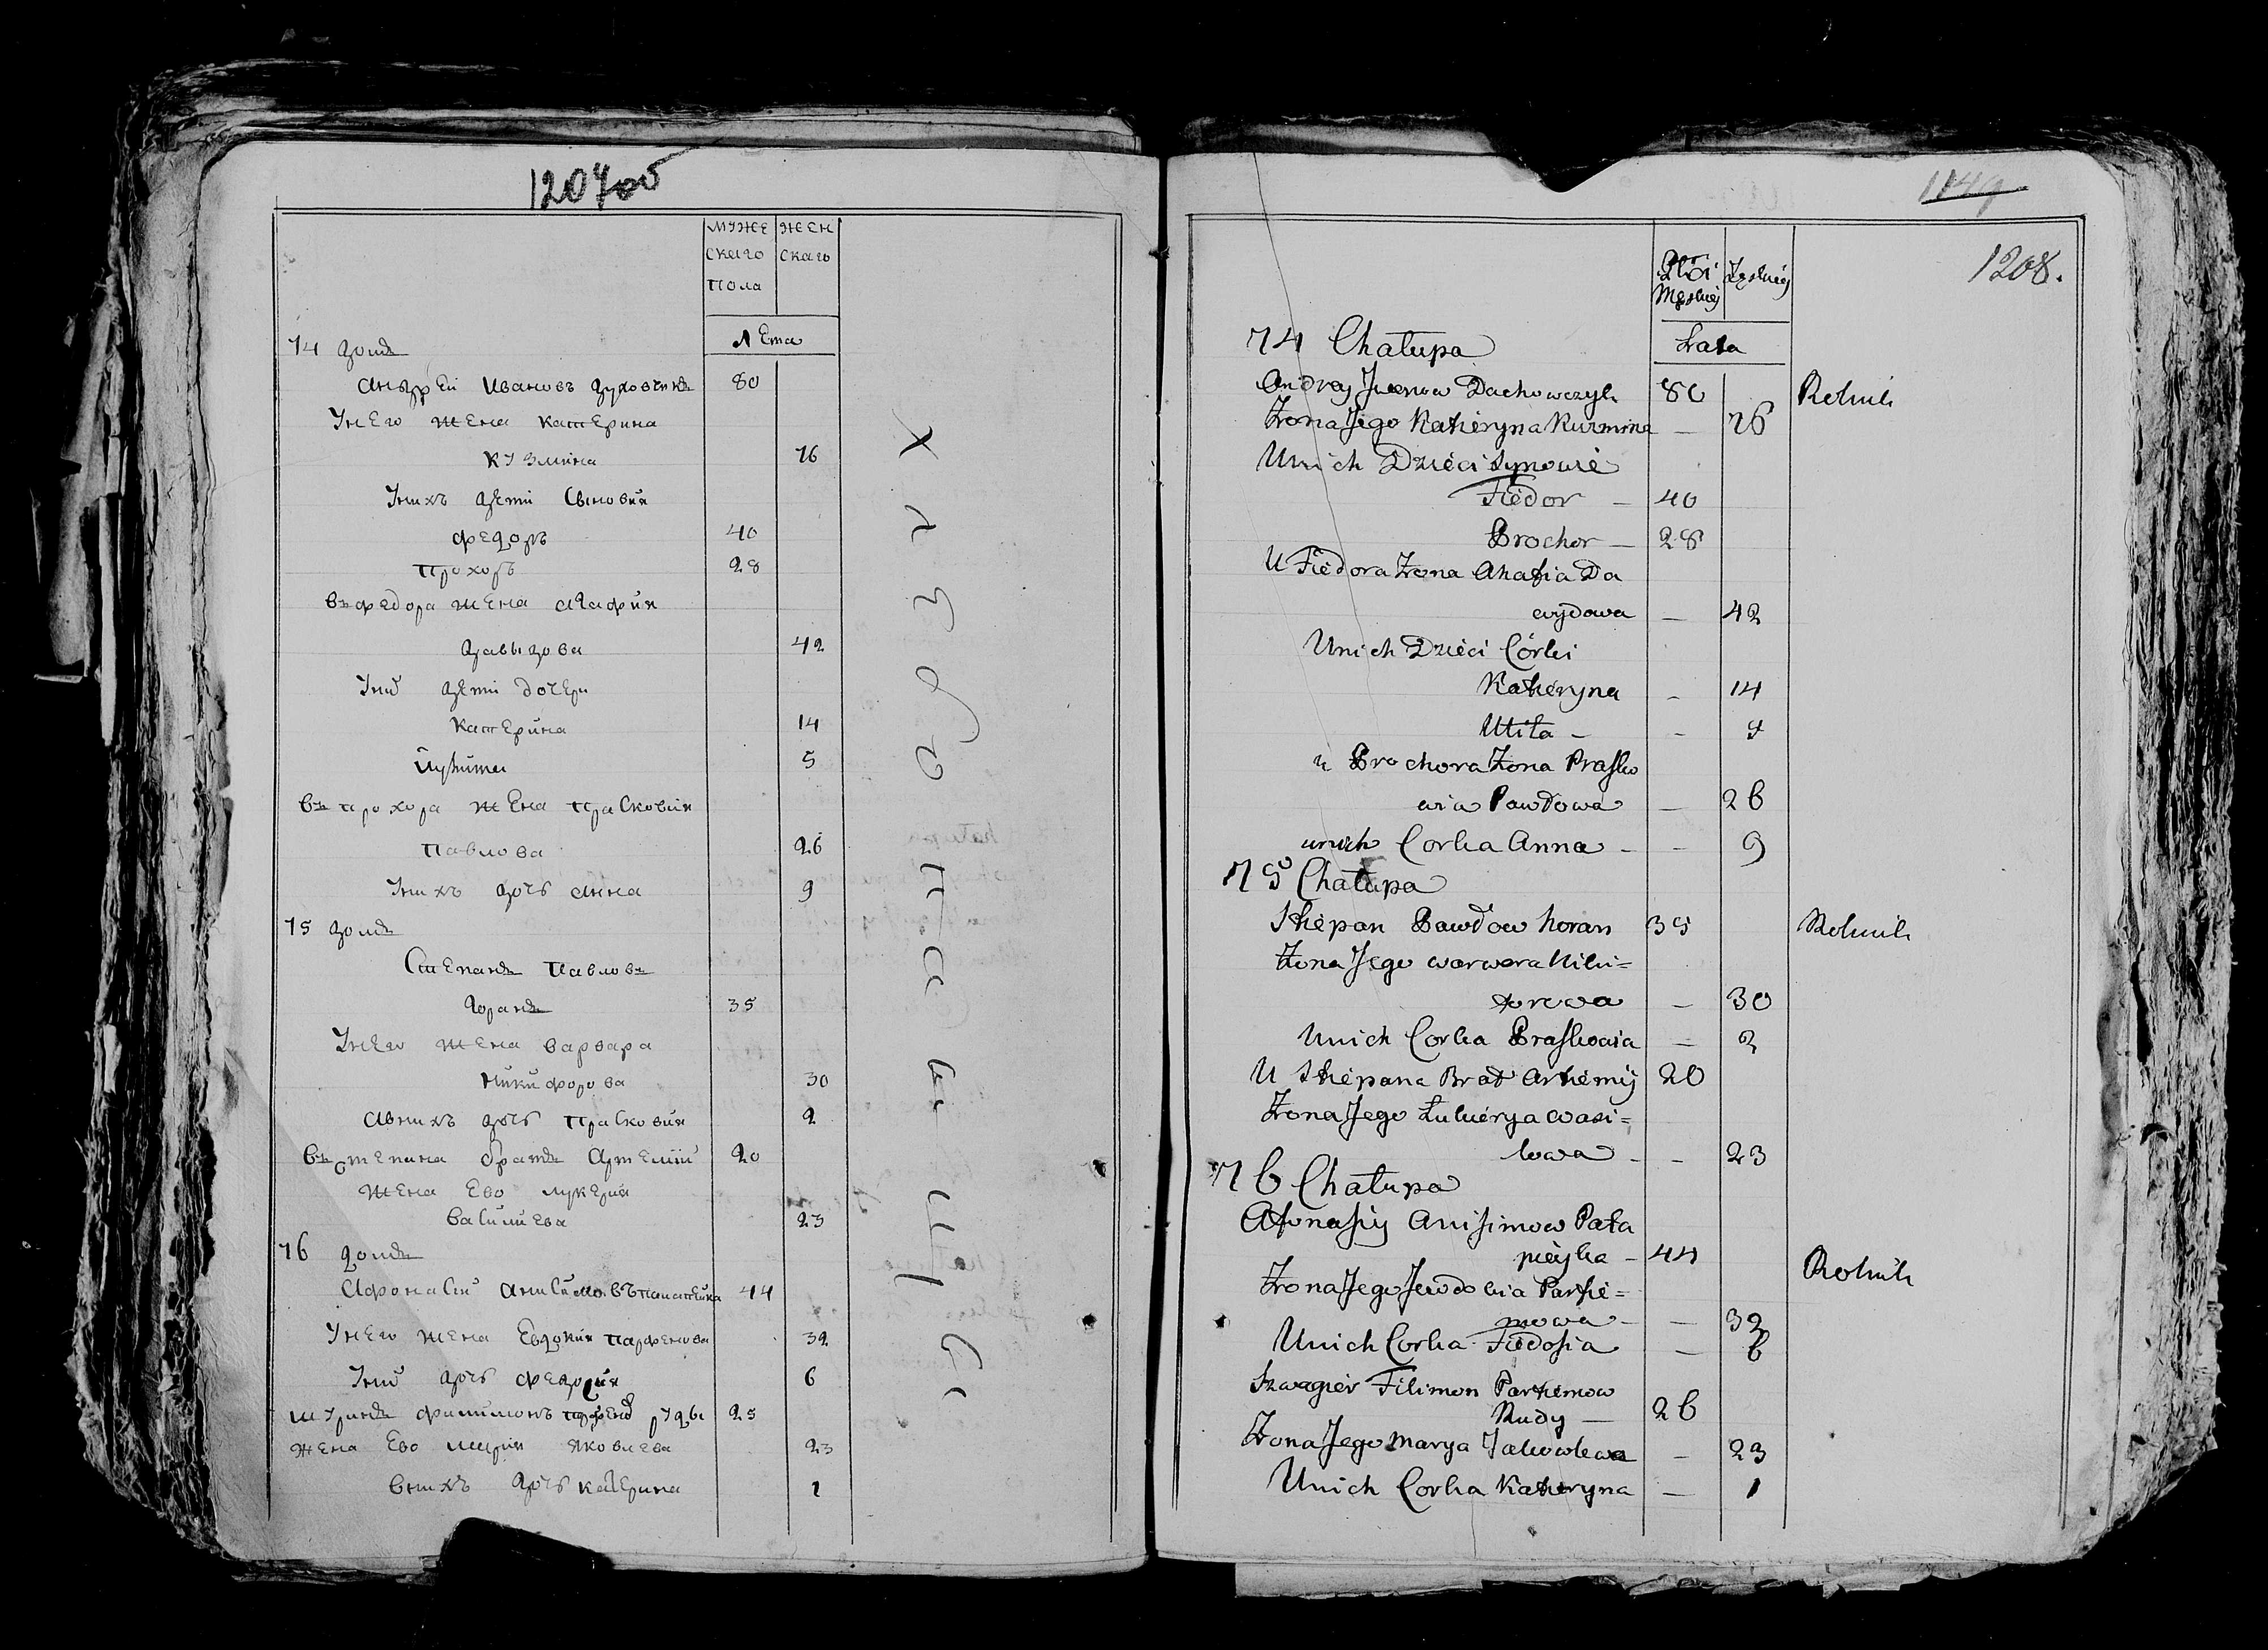 1207об
муже
ского
пола
жен
ского
Лета
74 домъ
Андрей Ивановъ Духовчикъ 80
У него жена Катерина
Кузмина 76
У нихъ дети Сыновия
Федоръ 40
Прохоръ 28
Въ Федора жена Агафия
Давыдова 42
У ний дети дочери
Катерина 14
5
Въ Прохора жена Прасковия
Павлова 26
У нихъ дочь Анна 9
75 домъ
Степанъ Павловъ
Горанъ 35
У него жена Варвара
Никифорова 30
Авнихъ дочь Прасковия 2
Въ Степана братъ Артемий 20
Жена Ево Лукерия
Василиева 23
76 домъ
Афонасий Анисимовъ 44
У него жена Евдокия Парфенова 32
У ний дочь Федосия 6
Шуринъ Филимонъ Парфенов Руды 25
Жена Ево Мария Яковлева 23
Внихъ дочь Катерина 1
Хлебопашцы
1149
1208.
Płci
Męskiej
Żęskiej
Lata
74 Chałupa
Andrey Iwanow Duchowczyk 80 Rolnik
Żona Jego Katieryna Kuzmina — 76
U nich Dzieci Synowie
Fiedor — 40
Prochor — 28
U Fiedora Żona Ahafia Da
wydowa — 42
U nich Dzieci Córki
Katieryna - 14
Ulita - - 5
u Prochora Żona Prasko
wia Pawłowa — 26
u nich Corka Anna - - 9
75 Chałupa
Stiepan Pawłow Horan 35 Rolnik
Żona Jego Warwara Niki=
forowa — 30
U nich Corka Praskowia — 2
U Stiepana Brat Artiemij 20
Żona Jego Łukierya Wasi=
lewa - - 23
76 Chałupa
Afonasiy Anisimow Pała
piejka - 44 Rolnik
Żona Jego Jewdokia Parfie=
nowa - — 32
U nich Corka Fiedosia — 6
Szwagier Filimon Parfienow
Rudy — 26
Żona Jego Marya Jakowlewa - 23
U nich Corka Katieryna — 1